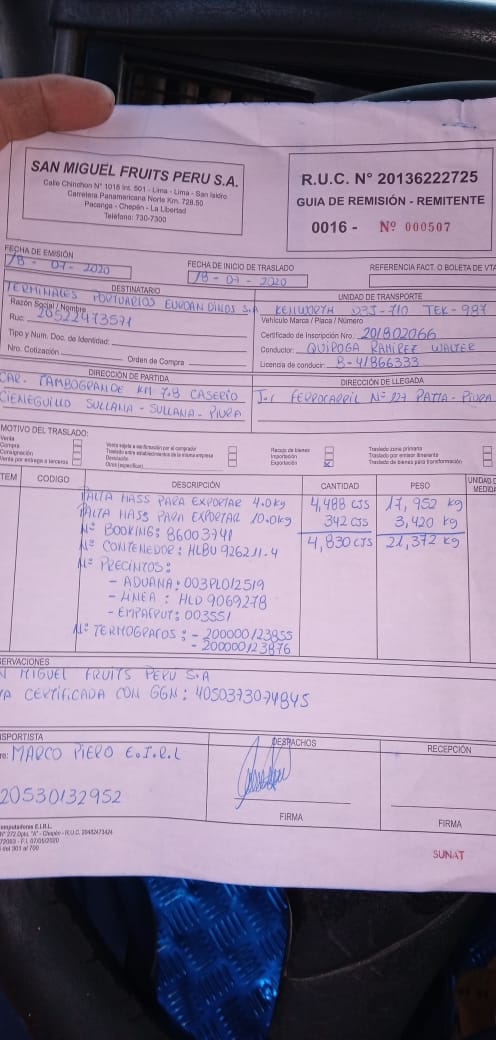 SAN MIGUEL FRUITS PERU S.A.
Calle Chinchon N° 1018 Int. 501 - Lima - Lima - San Isidro
Carretera Panamericana Norte Km. 728.50
Pacanga - Chepén - La Libertad
Teléfono: 730-7300
R.U.C. N° 20136222725
GUIA DE REMISIÓN - REMITENTE
0016 - Nº 000507
FECHA DE EMISIÓN
18 - 07 - 2020
FECHA DE INICIO DE TRASLADO
18 - 07 - 2020
REFERENCIA FACT. O BOLETA DE VTA
DESTINATARIO
TERMINALES PORTUARIOS EUROANDINOS S.A
Razón Social / Nombre
Ruc: 20522473571
Tipo y Num. Doc. de Identidad:
Nro. Cotización Orden de Compra
UNIDAD DE TRANSPORTE
KENWORTH D3J-710 TEK-987
Vehículo Marca / Placa / Número
Certificado de Inscripción Nro. 201802066
Conductor: QUIROGA RAMIREZ WALTER
Licencia de conducir: B-41866333
DIRECCIÓN DE PARTIDA
CAR. TAMBOGRANDE KM 7.8 CASERIO
CIENEGUILLO SULLANA - SULLANA - PIURA
DIRECCIÓN DE LLEGADA
FERROCARRIL Nº 127 PAITA - PIURA
MOTIVO DEL TRASLADO:
Venta
Compra
Consignación
Venta por entrega a terceros
Venta sujeta a confirmación por el comprador
Traslado entre establecimientos de la misma empresa
Devolución
Otros (especificar)
Recojo de bienes
Importación
Exportación X
Traslado zona primaria
Traslado por emisor itinerante
Traslado de bienes para transformación
TEM CODIGO DESCRIPCIÓN CANTIDAD PESO UNIDAD D
MEDIDA
PALTA HASS PARA EXPORTAR 4.0kg 4,488 CJS 17,952 kg
PALTA HASS PARA EXPORTAR 10.0kg 342 CJS 3,420 kg
Nº BOOKING: 86003741 4,830 CJS 21,372 kg
Nº CONTENEDOR: HLBU 926211-4
Nº PRECINTOS:
- ADUANA: 003PL012519
- LÍNEA: HLD 9069278
- EMPAFRUT: 003551
Nº TERMOGRAFOS: - 200000123855
- 200000123876
SERVACIONES
N MIGUEL FRUITS PERU S.A
VA CERTIFICADA CON GGN: 4050373074845
NSPORTISTA
re: MARCO PIERO E.I.R.L
20530132952
DESPACHOS
FIRMA
RECEPCIÓN
FIRMA
SUNAT